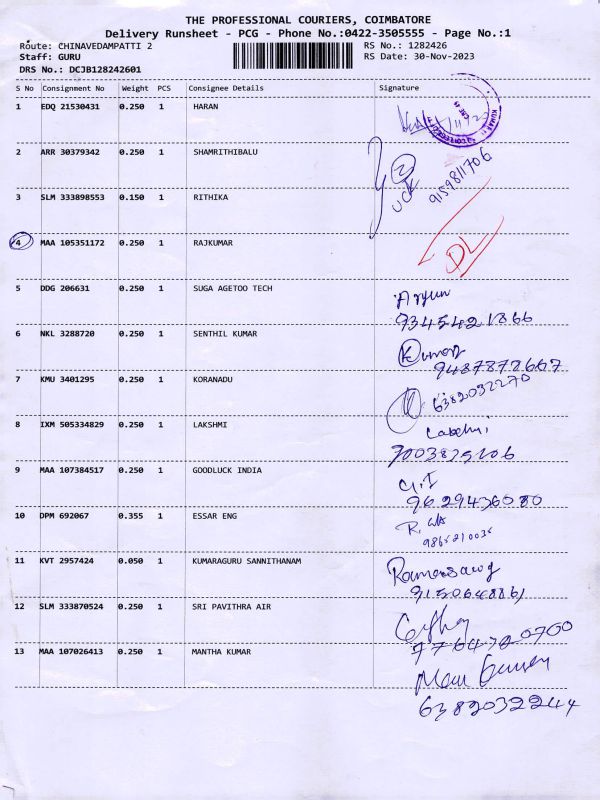 THE PROFESSIONAL COURIERS, COIMBATORE
Delivery Runsheet - PCG - Phone No.:0422-3505555 - Page No.:1
Route: CHINAVEDAMPATTI 2 RS No.: 1282426
Staff: GURU RS Date: 30-Nov-2023
DRS No.: DCJB128242601
S No Consignment No Weight PCS Consignee Details Signature
1 EDQ 21530431 0.250 1 HARAN
2 ARR 30379342 0.250 1 SHAMRITHIBALU
9159811706
3 SLM 333898553 0.150 1 RITHIKA
4 MAA 105351172 0.250 1 RAJKUMAR DL
5 DDG 206631 0.250 1 SUGA AGETOO TECH Arjun
9345421866
6 NKL 3288720 0.250 1 SENTHIL KUMAR Kumar
9487878667
7 KMU 3401295 0.250 1 KORANADU 6382032270
8 IXM 505334829 0.250 1 LAKSHMI
9 MAA 107384517 0.250 1 GOODLUCK INDIA G.I
9629436080
10 DPM 692067 0.355 1 ESSAR ENG
11 KVT 2957424 0.050 1 KUMARAGURU SANNITHANAM
12 SLM 333870524 0.250 1 SRI PAVITHRA AIR
13 MAA 107026413 0.250 1 MANTHA KUMAR
6382032244